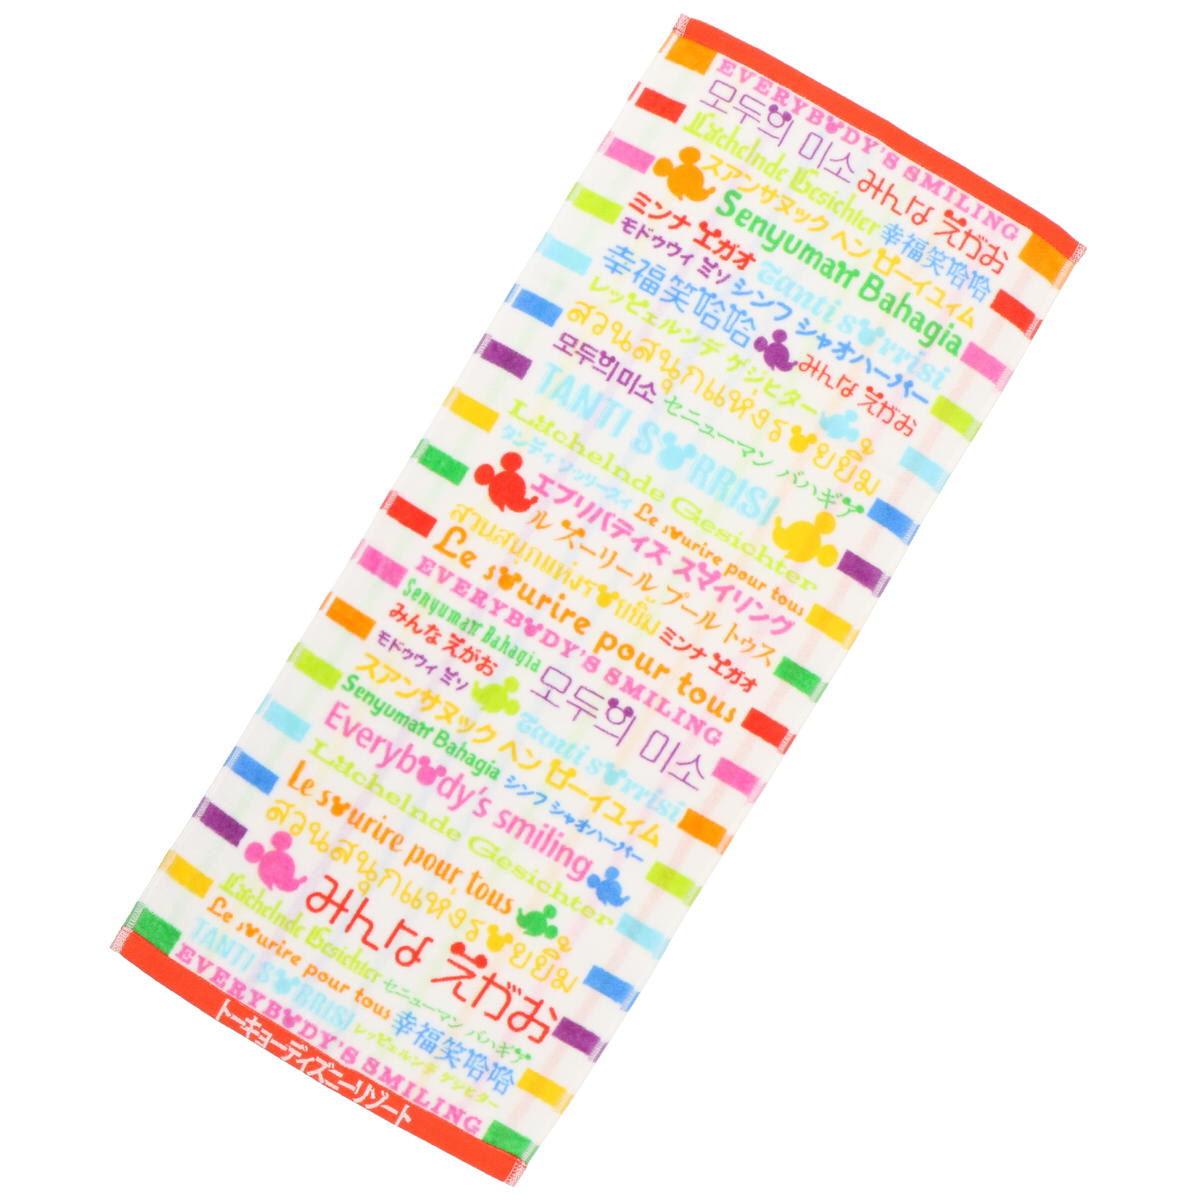 EVERYBODY'S SMILING
모두의 미소 みんな えがお
Lächelnde Gesichter 幸福笑哈哈
スアンサヌック ヘン ローイユイム
ミンナ エガオ Senyuman Bahagia
モドゥウィ ミソ シンフ シャオハーバー Tanti sorrisi
幸福笑哈哈 みんな えがお
レッヒェルンデ ゲジヒター
สวนสนุกแห่งรอยยิ้ม
모두의 미소 セニューマン バハギア
TANTI SORRISI
Lächelnde Gesichter
タンティ ソッリーズィ Le sourire pour tous
エブリバディズ スマイリング
ル スーリール プール トゥス
สวนสนุกแห่งรอยยิ้ม ミンナ エガオ
Le sourire pour tous
EVERYBODY'S SMILING
Senyuman Bahagia 모두의 미소
みんな えがお
モドゥウィ ミソ Tanti sorrisi
スアンサヌック ヘン ローイユイム
Senyuman Bahagia シンフ シャオハーバー
Everybody's smiling
Lächelnde Gesichter
Le sourire pour tous
สวนสนุกแห่งรอยยิ้ม
みんな えがお
Lächelnde Gesichter セニューマン バハギア
Le sourire pour tous 幸福笑哈哈
TANTI SORRISI レッヒェルンデ ゲジヒター
EVERYBODY'S SMILING
トーキョーディズニーリゾート